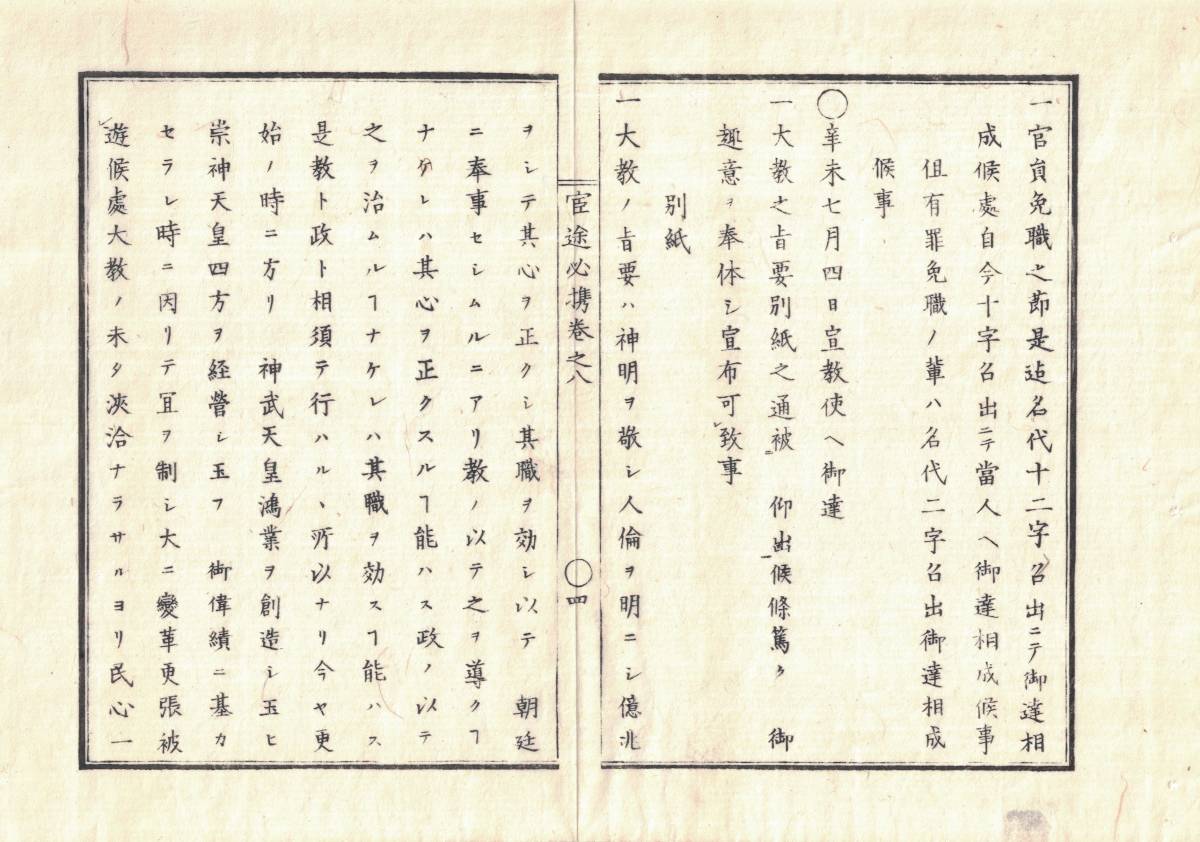 一官員免職之節是迠名代十二字召出ニテ御達相
成候處自今十字召出ニテ當人ヘ御達相成候事
但有罪免職ノ輩ハ名代二字召出御達相成
候事
〇辛未七月四日宣教使ヘ御達
一大教之旨要別紙之通被 仰出候條篤ク 御
趣意ヲ奉体シ宣布可致事
別紙
一大教ノ旨要ハ神明ヲ敬シ人倫ヲ明ニシ億兆
官途必携巻之八 〇四
ヲシテ其心ヲ正クシ其職ヲ効シ以テ 朝廷
ニ奉事セシムルニアリ教ノ以テ之ヲ導クヿ
ナケレハ其心ヲ正クスルヿ能ハス政ノ以テ
之ヲ治ムルヿナケレハ其職ヲ効スヿ能ハス
是教ト政ト相須テ行ハルヽ所以ナリ今ヤ更
始ノ時ニ方リ 神武天皇鴻業ヲ創造シ玉ヒ
崇神天皇四方ヲ経營シ玉フ 御偉績ニ基カ
セラレ時ニ因リテ宜ヲ制シ大ニ變革更張被
遊候處大教ノ未タ浹洽ナラサルヨリ民心一